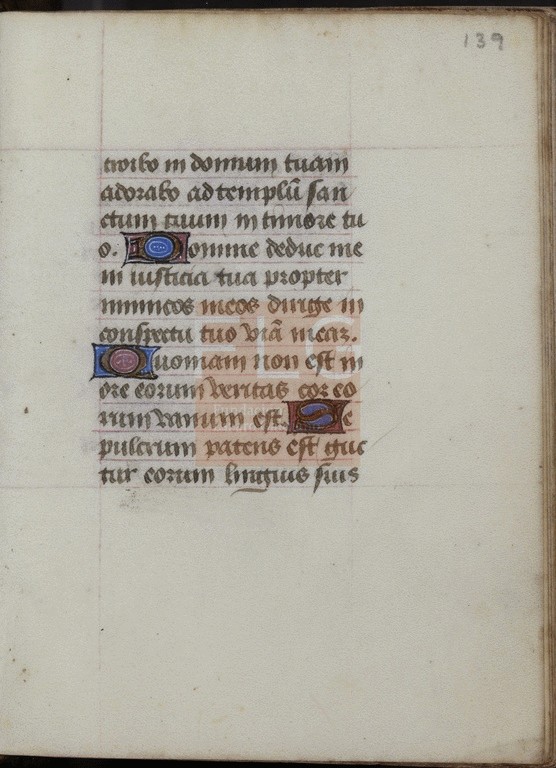 139
troibo in domum tuam
adorabo ad templū san
ctum tuum in timore tu
o. Domine deduc me
in iusticia tua propter
inimicos meos dirige in
conspectu tuo viā meam.
Quoniam non est in
ore eorum veritas cor eo
rum vanum est. Se
pulcrum patens est guc
tur eorum linguis suis